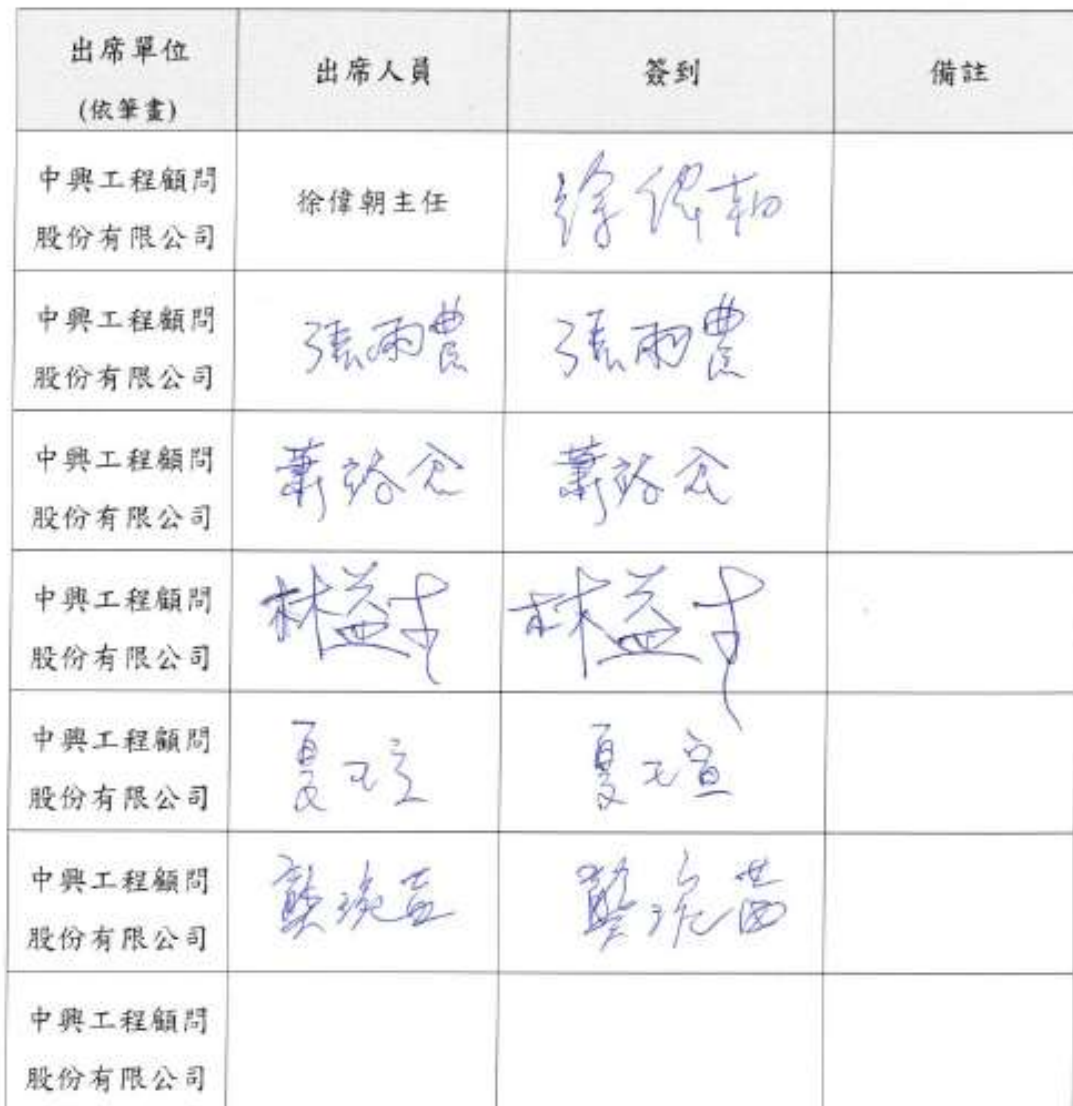 出席單位
(依筆畫)
出席人員
簽到
備註
中興工程顧問
股份有限公司
徐偉朝主任
徐偉朝
中興工程顧問
股份有限公司
張雨農
張雨農
中興工程顧問
股份有限公司
中興工程顧問
股份有限公司
林益生
林益生
中興工程顧問
股份有限公司
夏瑄
夏瑄
中興工程顧問
股份有限公司
中興工程顧問
股份有限公司